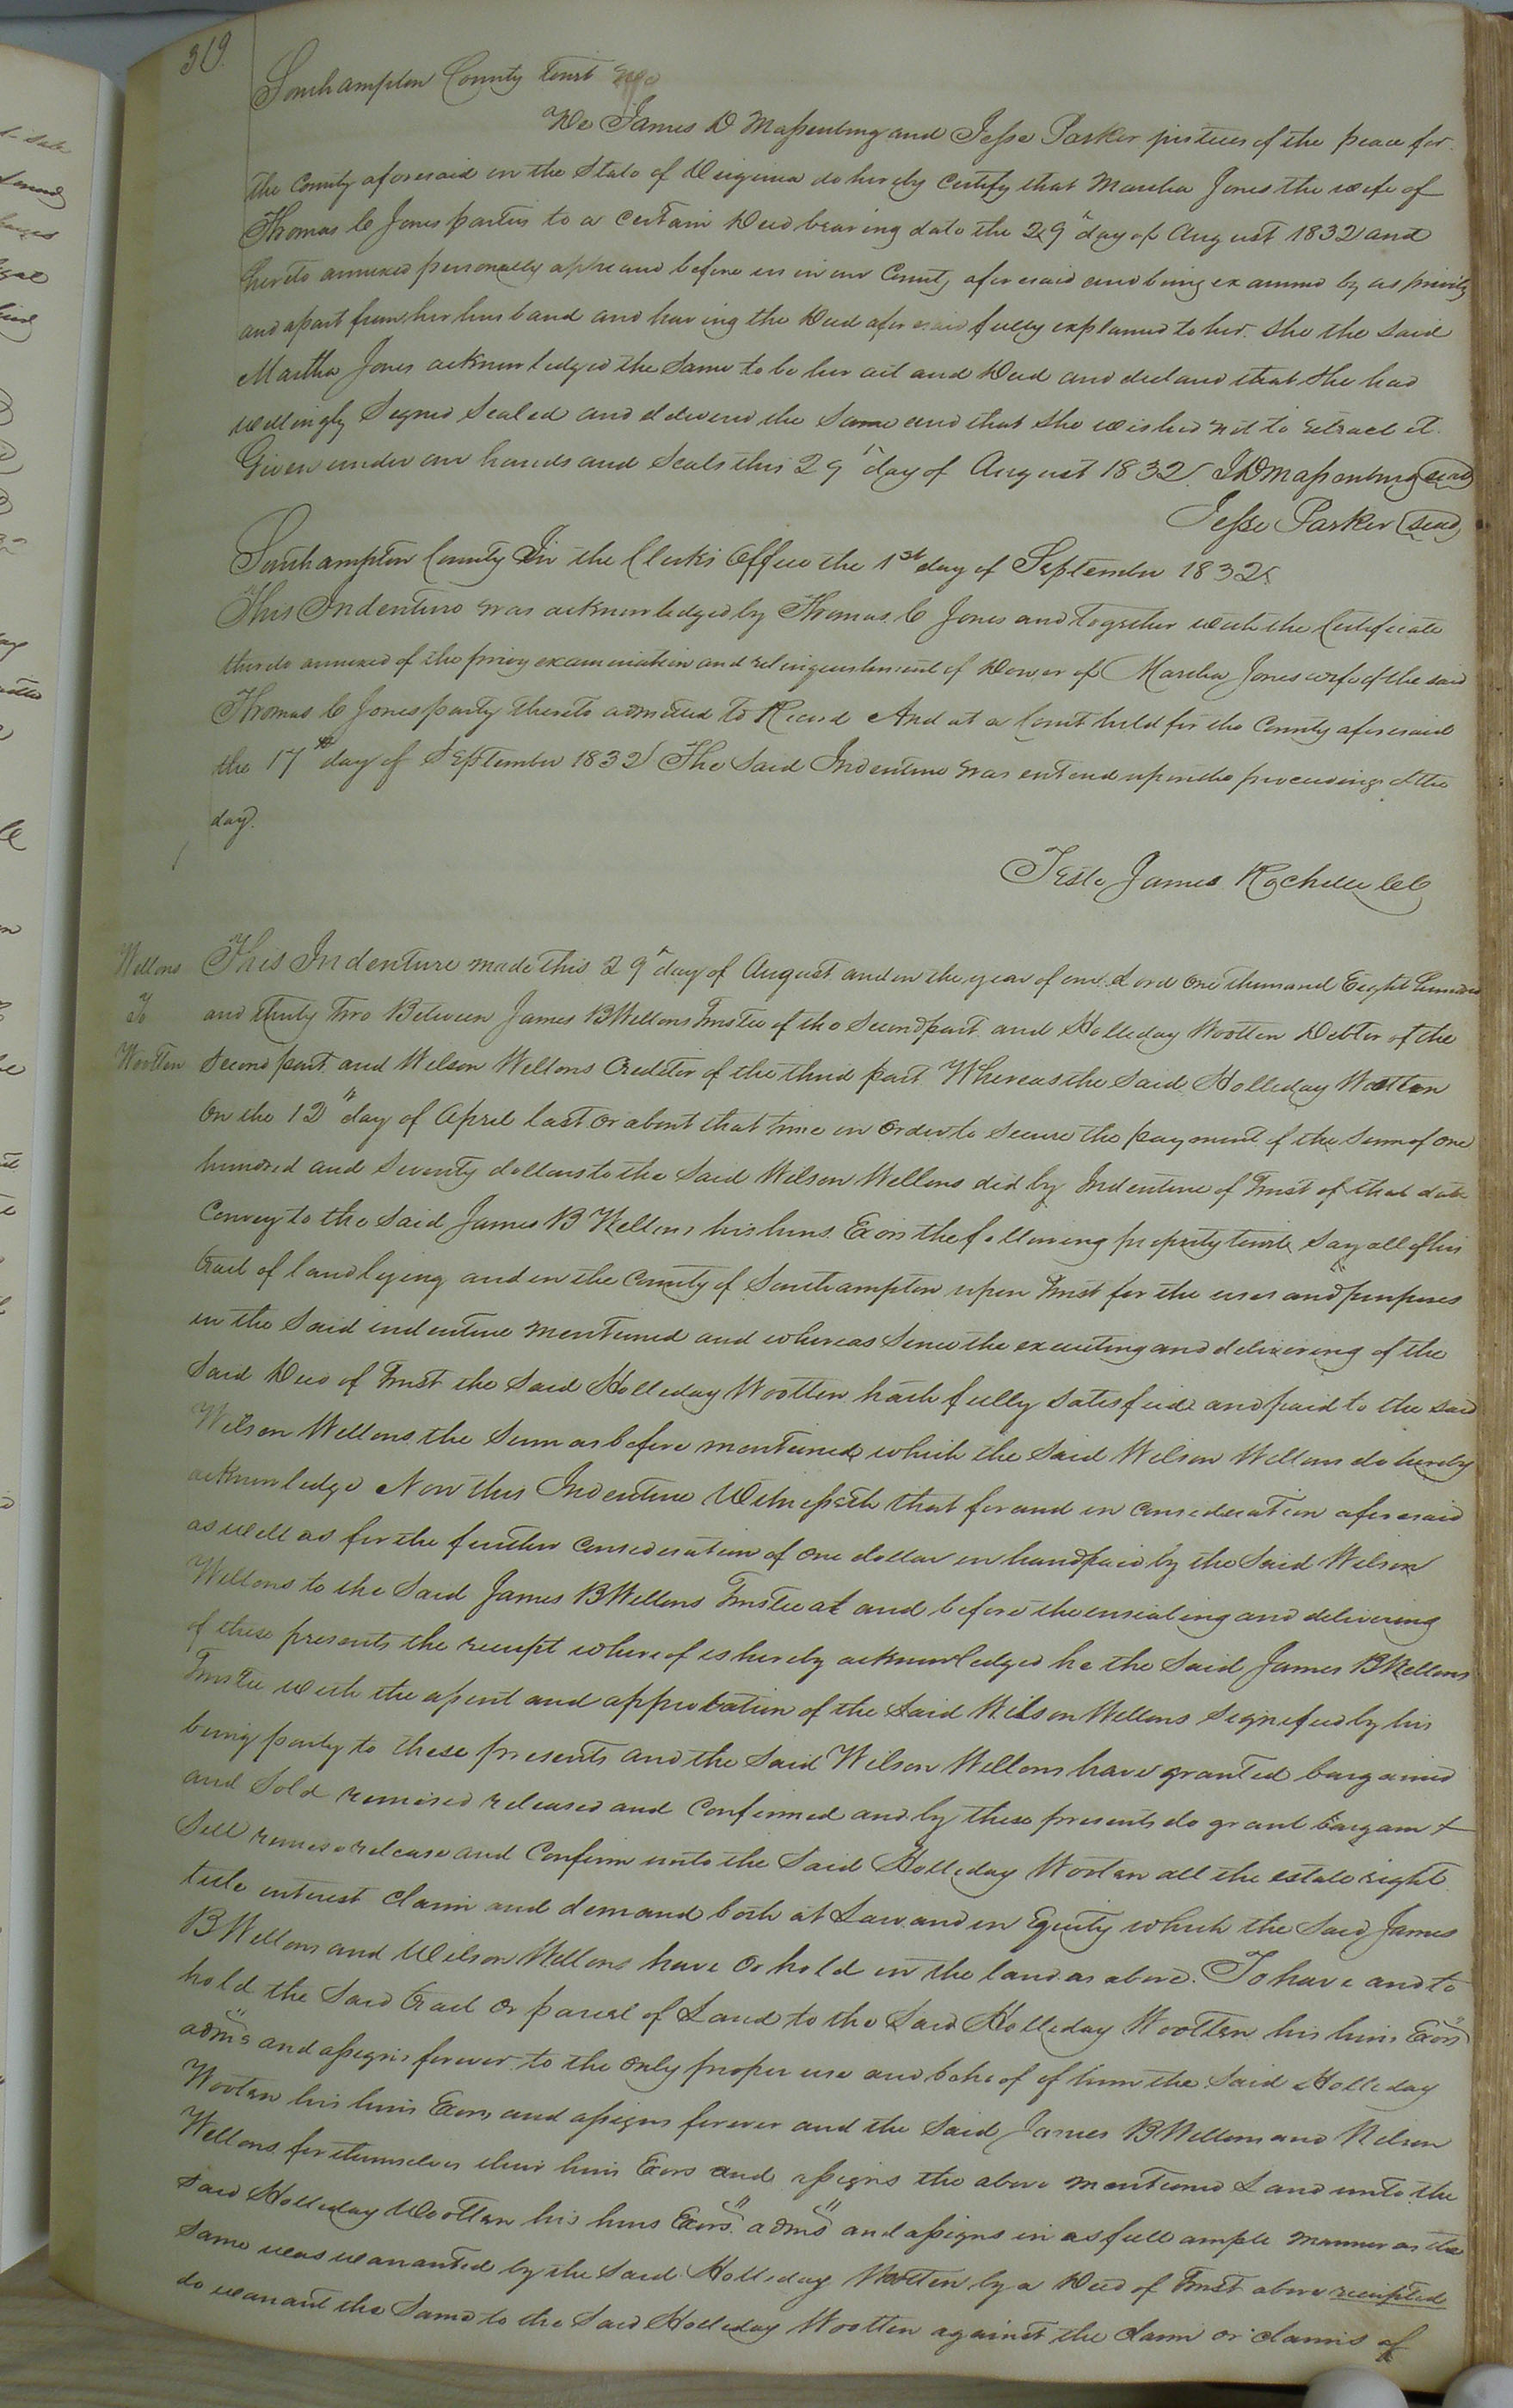 319.
Southampton County Court
We James D Massenburg and Jesse Parker justices of the peace for
the County aforesaid in the State of Virginia do hereby Certify that Martha Jones the wife of
Thomas C Jones parties to a certain Deed bearing date the 29th day of August 1832 and
hereto annexed personally appeared before us in our County aforesaid and being examined by us privily
and apart from her husband and having the Deed aforesaid fully explained to her. She the said
Martha Jones acknowledged the Same to be her act and Deed and declared that She had
willingly Signed Sealed and delivered the Same and that She wished not to retract it.
Given under our hands and Seals this 29th day of August 1832. JD Massenburg seal
Jesse Parker seal
Southampton County In the Clerks Office the 1st day of September 1832
This Indenture was acknowledged by Thomas C Jones and together with the Certificate
thereto annexed of the privy examination and relinquishment of Dower of Martha Jones wife of the said
Thomas C Jones party thereto admitted to Record And at a Court held for the County aforesaid
the 17th day of September 1832 The Said Indenture was entered upon the proceedings of the
day.
Teste James Rochelle CC
Wellons
To
Wootten
This Indenture made this 29th day of August and in the year of our Lord One thousand Eight hundred
and thirty two Between James B Wellons Trustee of the Second part and Holleday Wootten Debtor of the
Second part and Wilson Wellons Creditor of the third part Whereas the Said Holleday Wootten
On the 12th day of April last or about that time in Order to Secure the payment of the Sum of one
hundred and Seventy dollars to the Said Wilson Wellons did by Indenture of Trust of that date
Convey to the Said James B Wellons his heirs Exors the following property towit Say all of his
tract of land lying and in the County of Southampton upon Trust for the uses and purposes
in the Said indenture mentioned and whereas Since the executing and delivering of the
Said Deed of Trust the Said Holleday Wootten hath fully Satisfied and paid to the said
Wilson Wellons the Sum as before mentioned which the Said Wilson Wellons do hereby
acknowledge Now this Indenture Witnesseth that for and in Consideration aforesaid
as well as for the further Consideration of one dollar in hand paid by the Said Wilson
Wellons to the Said James B Wellons Trustee at and before the ensealing and delivering
of these presents the receipt whereof is hereby acknowledged he the Said James B Wellons
Trustee with the assent and approbation of the Said Wilson Wellons Signified by his
being party to these presents and the Said Wilson Wellons have granted bargained
and Sold remised released and Confirmed and by these presents do grant bargain &
Sell remise release and Confirm unto the Said Holleday Wooten all the estate right
title interest Claim and demand both at Law and in Equity which the Said James
B Wellons and Wilson Wellons have or hold in the land as above. To have and to
hold the Said tract or parcel of Land to the Said Holleday Wootten his heirs Exors
adms and assigns forever to the only proper use and behoof of him the Said Holleday
Wooten his heirs Exors and assigns forever and the Said James B Wellons and Wilson
Wellons for themselves their heirs Exors and assigns the above mentioned Land unto the
Said Holleday Wootten his heirs Exors adms and assigns in as full ample manner as the
Same was warranted by the Said Holleday Wootten by a Deed of Trust above receipted
do warrant the Same to the Said Holleday Wootten against the claim or claims of